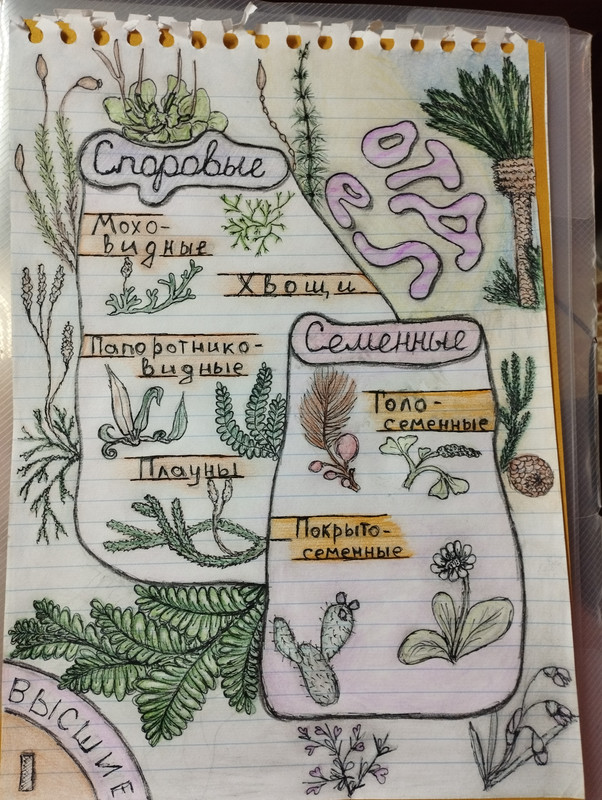 ОТД
ел
Споровые
Мохо-
видные
Хвощи
Папоротнико-
видные
Плауны
Семенные
Голо-
семенные
Покрыто-
семенные
ВЫСШИЕ
I